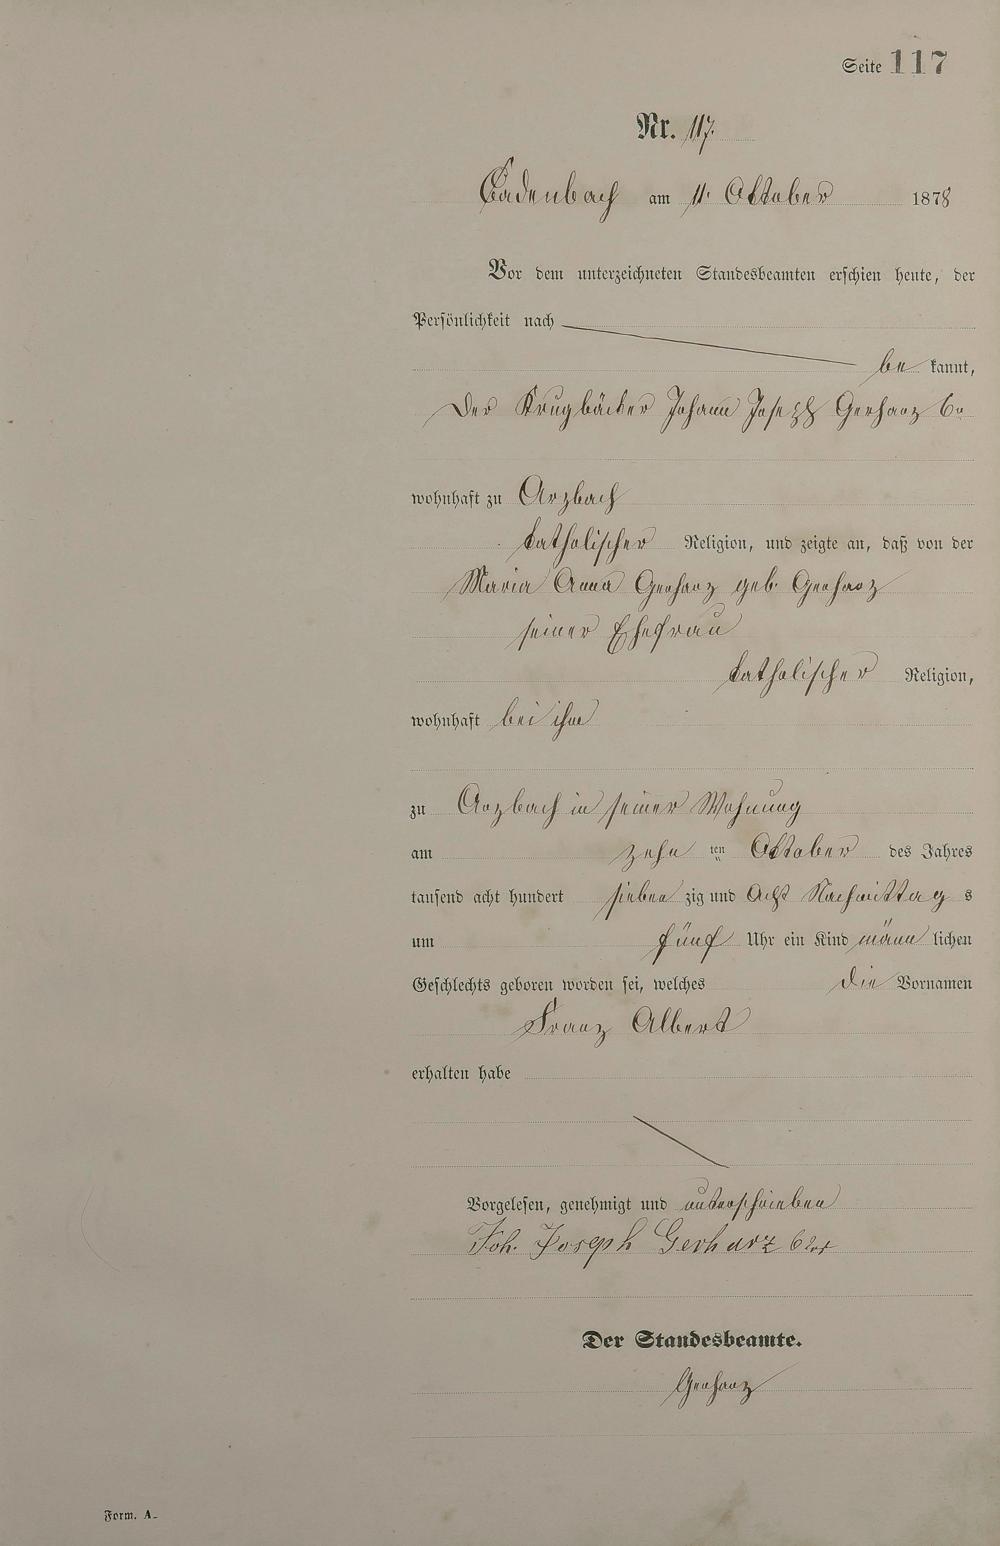 Seite 117
Nr. 117.
Cadenbach am 11. Oktober 1878
Vor dem unterzeichneten Standesbeamten erschien heute, der
Persönlichkeit nach
be kannt,
Der Krugbäcker Johann Joseph Gerharz 6r
wohnhaft zu Arzbach
katholischer Religion, und zeigte an, daß von der
Maria Anna Gerharz geb. Gerharz
seiner Ehefrau
katholischer Religion,
wohnhaft bei ihm
zu Arzbach in seiner Wohnung
am zehn ten Oktober des Jahres
tausend acht hundert sieben zig und Acht Nachmittag s
um fünf Uhr ein Kind männ lichen
Geschlechts geboren worden sei, welches die Vornamen
Franz Albert
erhalten habe
Vorgelesen, genehmigt und unterschrieben
Joh. Joseph Gerharz 6ter
Der Standesbeamte.
Gerharz
Form. A.